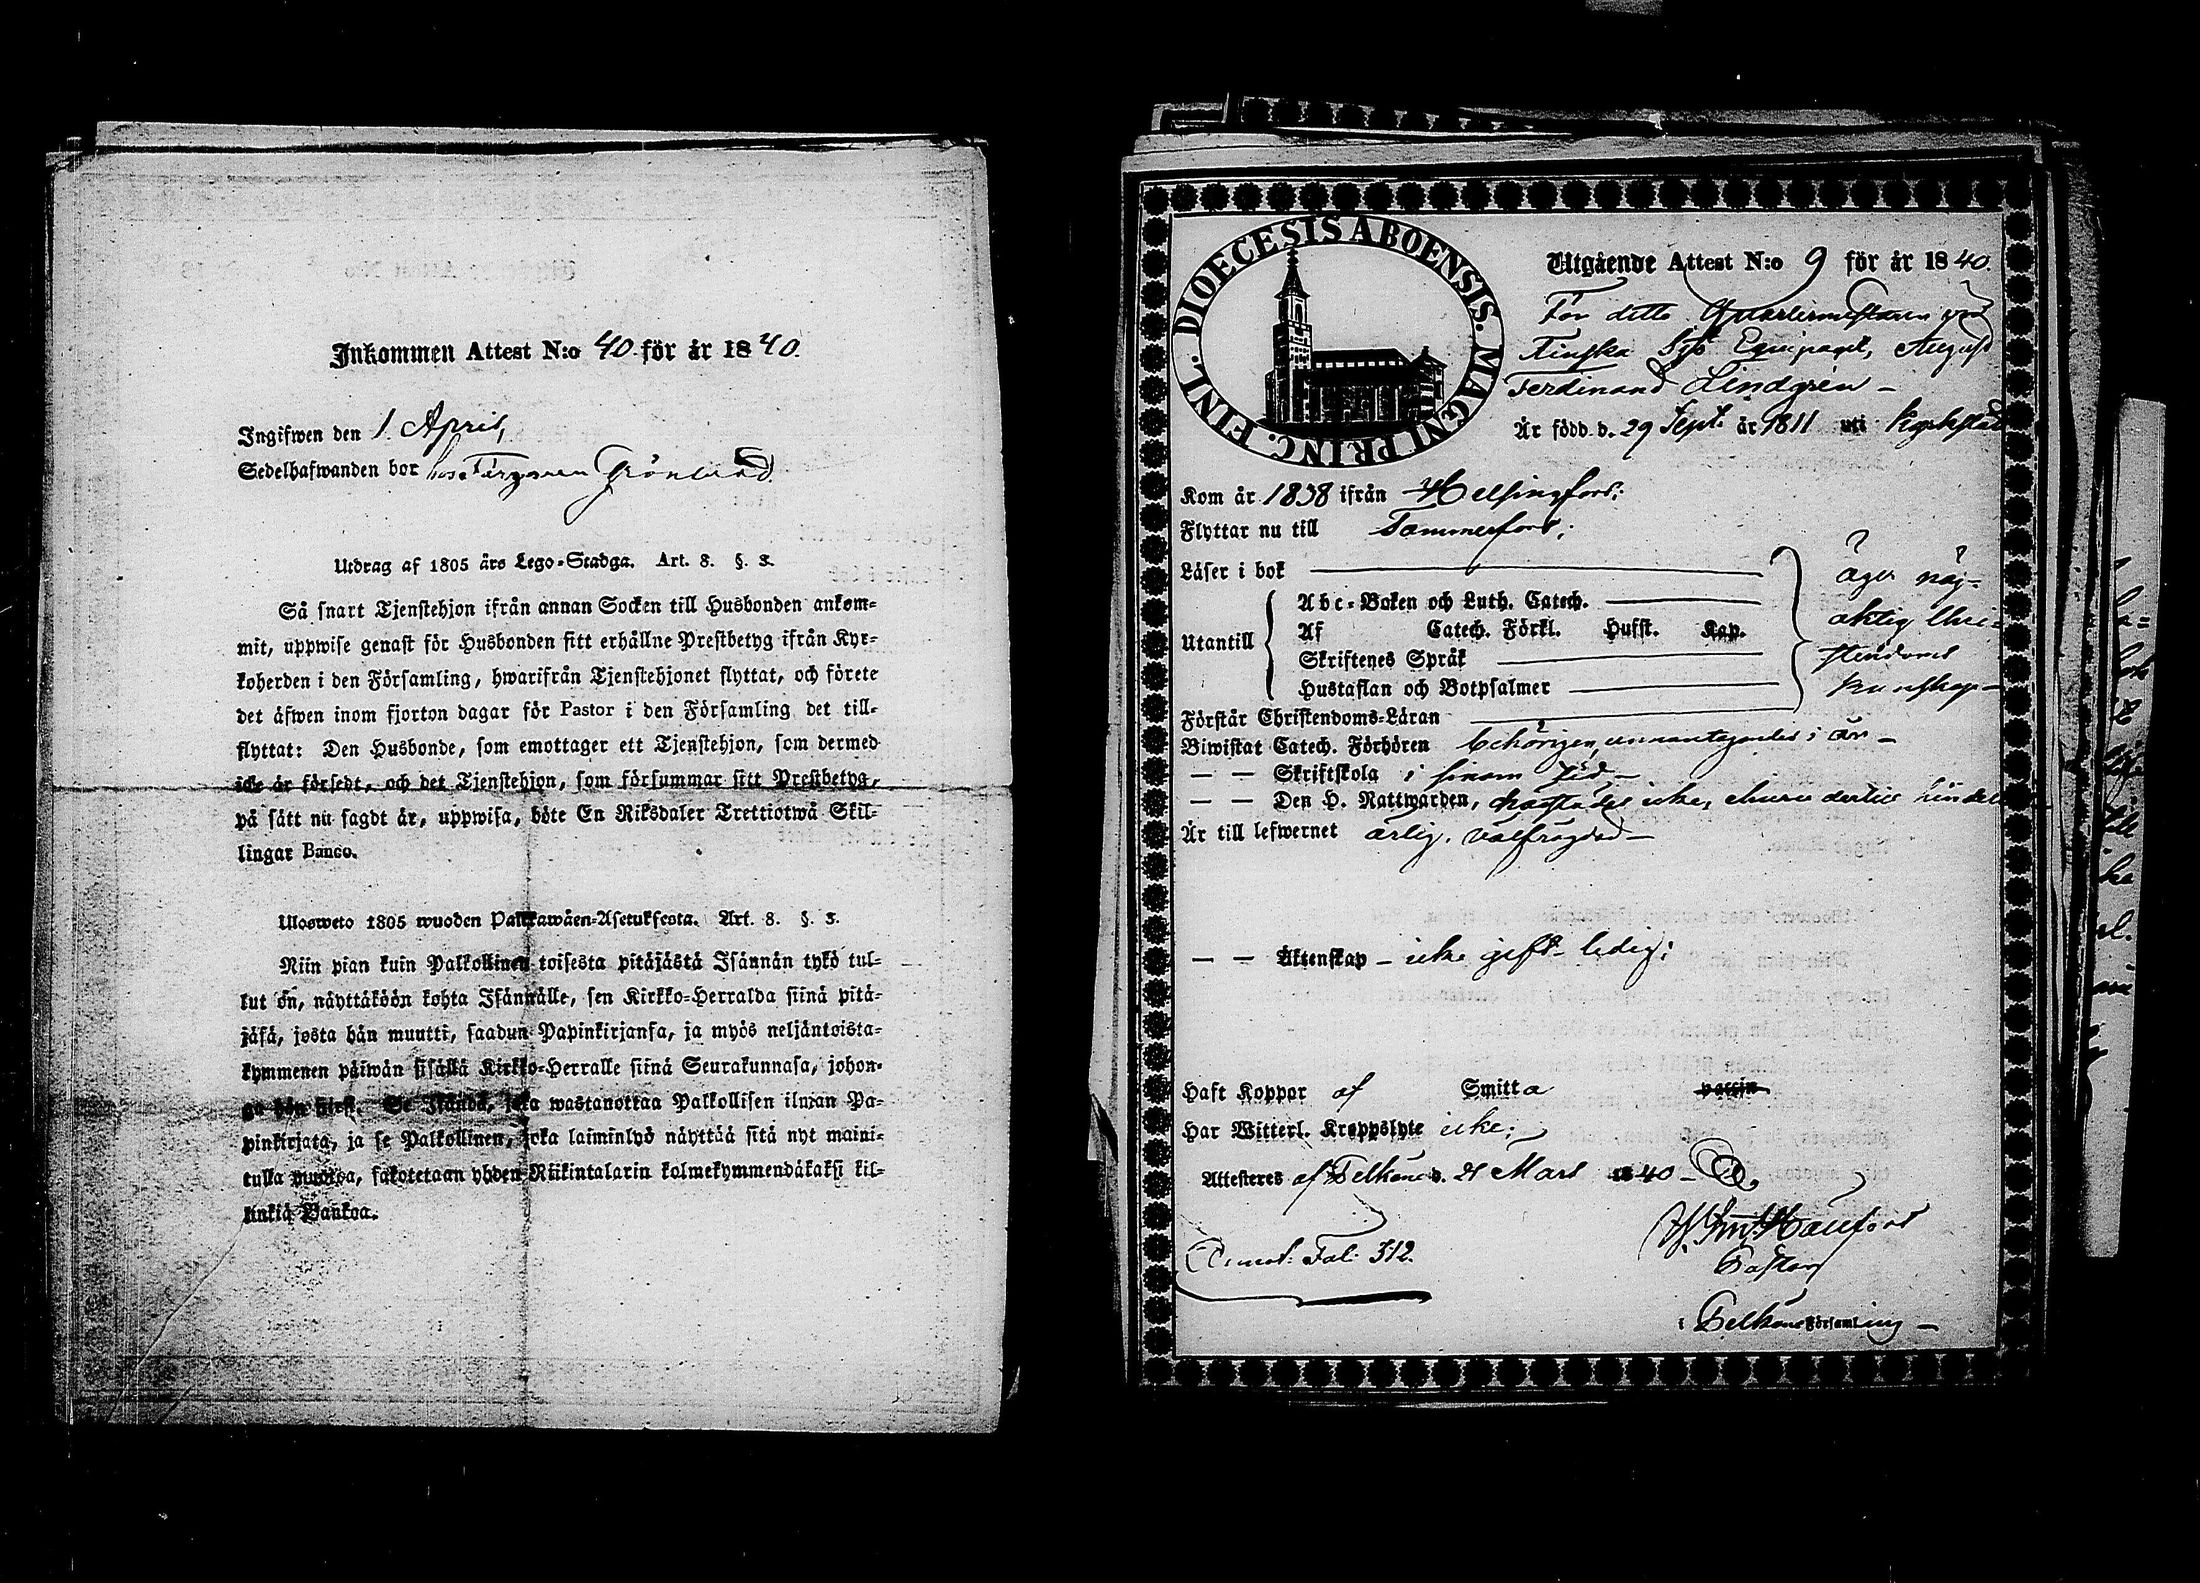 Inkommen Attest N:o 40 för år 1840.
Ingifwen den 1. April,
Sedelhafwanden bor hos Färgaren Grönlund.
Utdrag af 1805 års Lego-Stadga. Art. 8. §. 3.
Så snart Tjenstehjon ifrån annan Socken till Husbonden ankom-
mit, uppwise genast för Husbonden sitt erhållne Prestbetyg ifrån Kyr-
koherden i den Församling, hwarifrån Tjenstehjonet flyttat, och förete
det äfwen inom fjorton dagar för Pastor i den Församling det till-
flyttat: Den Husbonde, som emottager ett Tjenstehjon, som dermed
icke är försedt, och det Tjenstehjon, som försummar sitt Prestbetyg,
på sätt nu sagdt är, uppwisa, böte En Riksdaler Trettiotwå Skil-
lingar Banco.
Ulosweto 1805 wuoden Palkkawäen-Asetuksesta. Art. 8. §. 3.
Niin pian kuin Palkollinen toisesta pitäjästä Isännän tykö tul-
lut on, näyttäköön kohta Isännälle, sen Kirkko-Herralda siinä pitä-
jäsä, josta hän muutti, saadun Papinkirjansa, ja myös neljäntoista-
kymmenen päiwän sisällä Kirkko-Herralle siinä Seurakunnasa, johon-
ga hän siirsi. Se Isändä, joka wastanottaa Palkollisen ilman Pa-
pinkirjata, ja se Palkollinen, joka laiminlyö näyttää sitä nyt maini-
tulla muotoa, sakotetaan yhden Riikintalarin kolmekymmendäkaksi kil-
linkiä Bankoa.
DIOECESIS ABOENSIS. MAGNI PRINC. FINL.
Utgående Attest N:o 9 för år 1840.
För detta Quartermästaren wid
Finska Sjö Equipaget, August
Ferdinand Lindgrén –
Är född d. 29 Sept. år 1811 uti
Kom år 1838 ifrån Helsingfors;
Flyttar nu till Tammerfors;
Läser i bok
Utantill
Abc-Boken och Luth. Catech.
Af Catech. Förkl. Husst. Kap.
Skriftenes Språk
Hustaflan och Botpsalmer
äger nöj-
aktig Chri-
stendoms
kunskap –
Förstår Christendoms-Läran
Biwistat Catech. Förhören behörigen, undantagandes i år –
— — Skriftskola i sinom tid –
— — Den H. Nattwarden,
Är till lefwernet ärlig, välfrägdad –
— — Äktenskap – icke gift – ledig;
Haft Koppor af Smitta vaccin
Har Witterl. Kroppslyte icke;
Attesteres af Pelkäne d. 21 Mars 1840 –
W. Haufors
Pastor
i Pelkäne Församling –
Fol: 312.